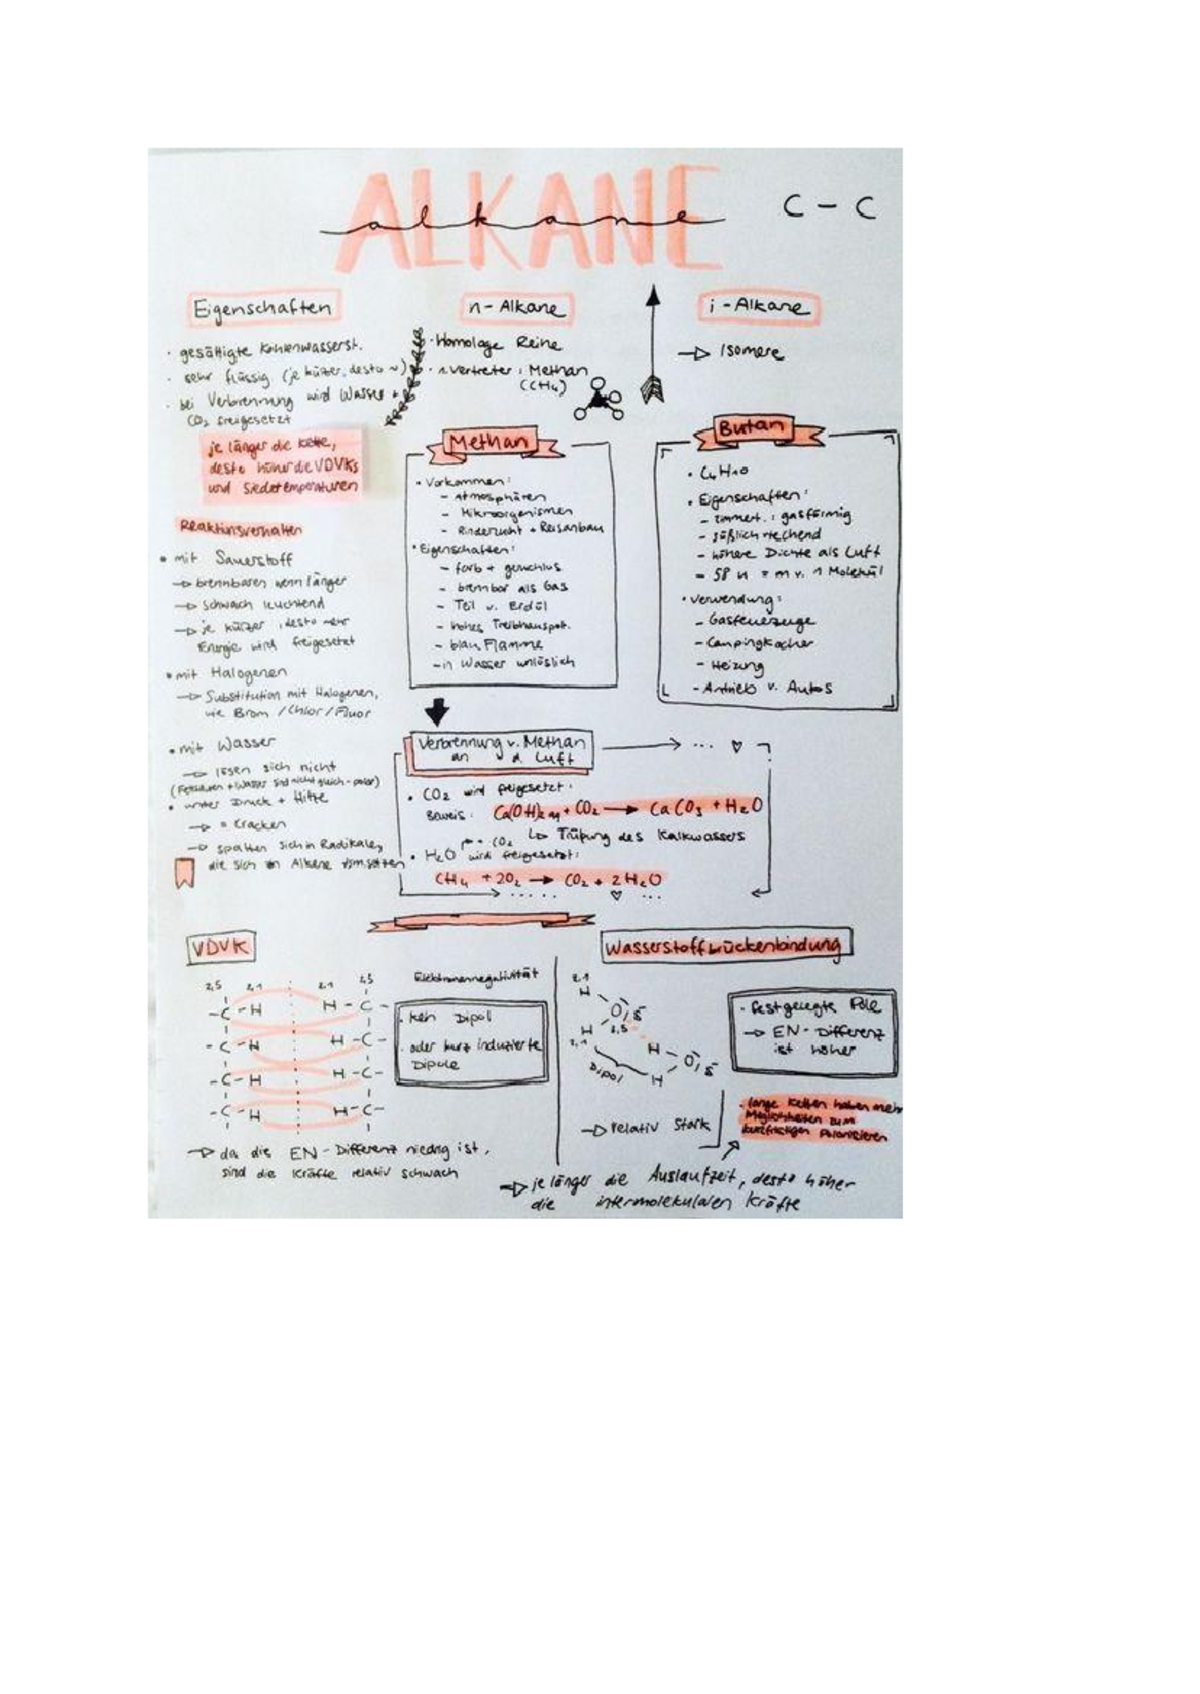 ALKANE
alkane
C - C
Eigenschaften
· gesättigte Kohlenwasserst.
· sehr flüssig (je kürzer, desto ~)
· bei Verbrennung wird Wasser +
CO₂ freigesetzt
je länger die Kette,
desto höher die VDVKs
und Siedetemperaturen
Reaktionsverhalten
• mit Sauerstoff
→ brennbaren wenn länger
→ schwach leuchtend
→ je kürzer, desto mehr
Energie wird freigesetzt
• mit Halogenen
→ Substitution mit Halogenen,
wie Brom / Chlor / Fluor
• mit Wasser
→ lösen sich nicht
(Fettsäuren + Wasser sind nicht gleich-polar)
• unter Druck + Hitze
→ = Cracken
→ spalten sich in Radikale,
die sich in Alkene umsetten
n - Alkane
· Homologe Reihe
· 1. Vertreter: Methan
(CH₄)
i - Alkane
→ Isomere
Methan
• Vorkommen:
- Atmosphären
- Mikroorganismen
- Rinderzucht + Reisanbau
• Eigenschaften:
- farb + geruchlos
- brennbar als Gas
- Teil v. Erdöl
- hohes Treibhauspot.
- blau Flamme
- in Wasser unlöslich
Butan
• C₄H10
• Eigenschaften:
- zimmert.: gasförmig
- süßlich riechend
- höhere Dichte als Luft
= 58 u = m v. 1 Molekül
• Verwendung:
- Gasfeuerzeuge
- Campingkocher
- Heizung
- Antrieb v. Autos
Verbrennung v. Methan
an d. Luft
• CO₂ wird freigesetzt:
Beweis: Ca(OH)₂ aq + CO₂ → CaCO₃ + H₂O
↳ Trübung des Kalkwassers
CO₂
• H₂O wird freigesetzt:
CH₄ + 2O₂ → CO₂ + 2H₂O
VDVK
2,5 2,1 2,1 2,5
-C-H H-C-
-C-H H-C-
-C-H H-C-
-C-H H-C-
Elektronennegativität
· kein Dipol
· oder kurz induzierte
Dipole
→ da die EN-Differenz niedrig ist,
sind die Kräfte relativ schwach
Wasserstoffbrückenbindung
2,1
H
O δ⁻
H 3,5
2,1
H
O δ⁻
H
Dipol
→ relativ stark
- festgelegte Pole
→ EN-Differenz
ist höher
· lange Ketten haben mehr
Möglichkeiten zum
kurzfristigen Polarisieren
→ je länger die Auslaufzeit, desto höher
die intermolekularen Kräfte